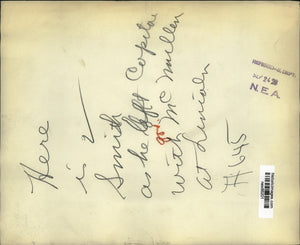 Here
is
Smith
as he left Copilot
with McMullen
at Lincoln
#645
REFERENCE DEPT.
N.E.A.